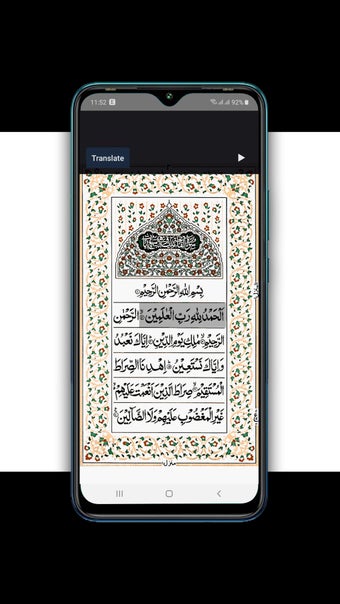 11:52 E 92%
Translate
بِسْمِ اللهِ الرَّحْمٰنِ الرَّحِيْمِ
اَلْحَمْدُ لِلّٰهِ رَبِّ الْعٰلَمِيْنَ الرَّحْمٰنِ
الرَّحِيْمِ مٰلِكِ يَوْمِ الدِّيْنِ اِيَّاكَ نَعْبُدُ
وَاِيَّاكَ نَسْتَعِيْنُ اِهْدِنَا الصِّرَاطَ
الْمُسْتَقِيْمَ صِرَاطَ الَّذِيْنَ اَنْعَمْتَ عَلَيْهِمْ
غَيْرِ الْمَغْضُوْبِ عَلَيْهِمْ وَلَا الضَّآلِّيْنَ